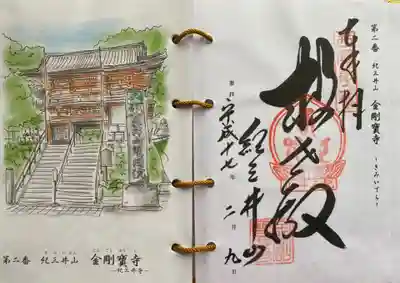 第二番 紀三井山 金剛寶寺
―紀三井寺―
第二番 紀三井山 金剛寶寺
～きみいでら～
奉拝
救世殿
紀三井山
平成十七年 二月 九日